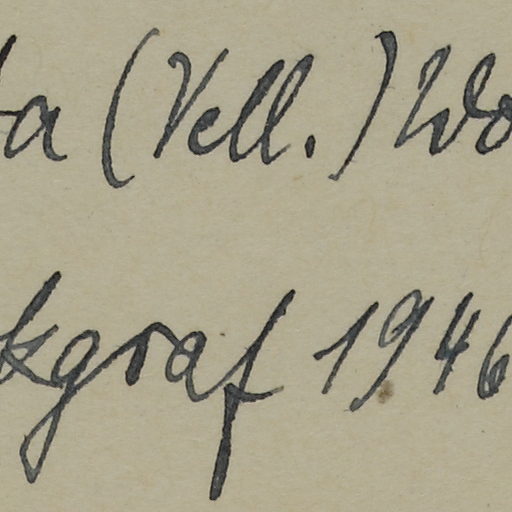 ta (Vell.) Wo
kgraf 1946